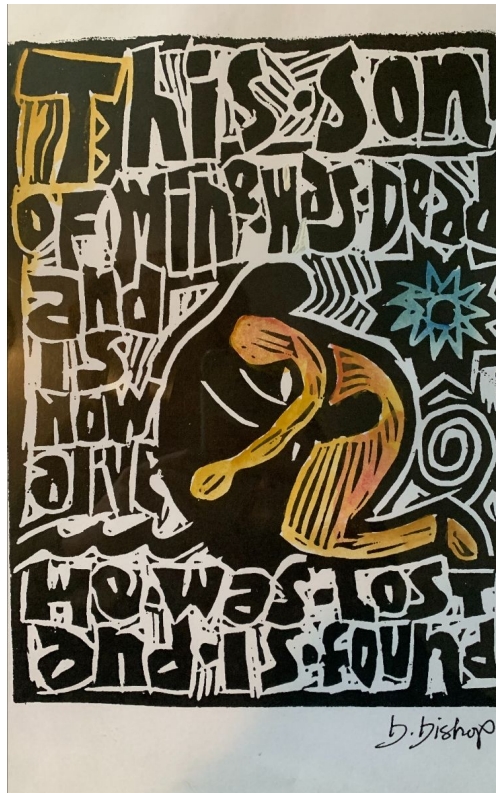 This·son
of Mine·was·Dead
and
is
now
alive
He·was·Lost
and·is·found
b.bishop